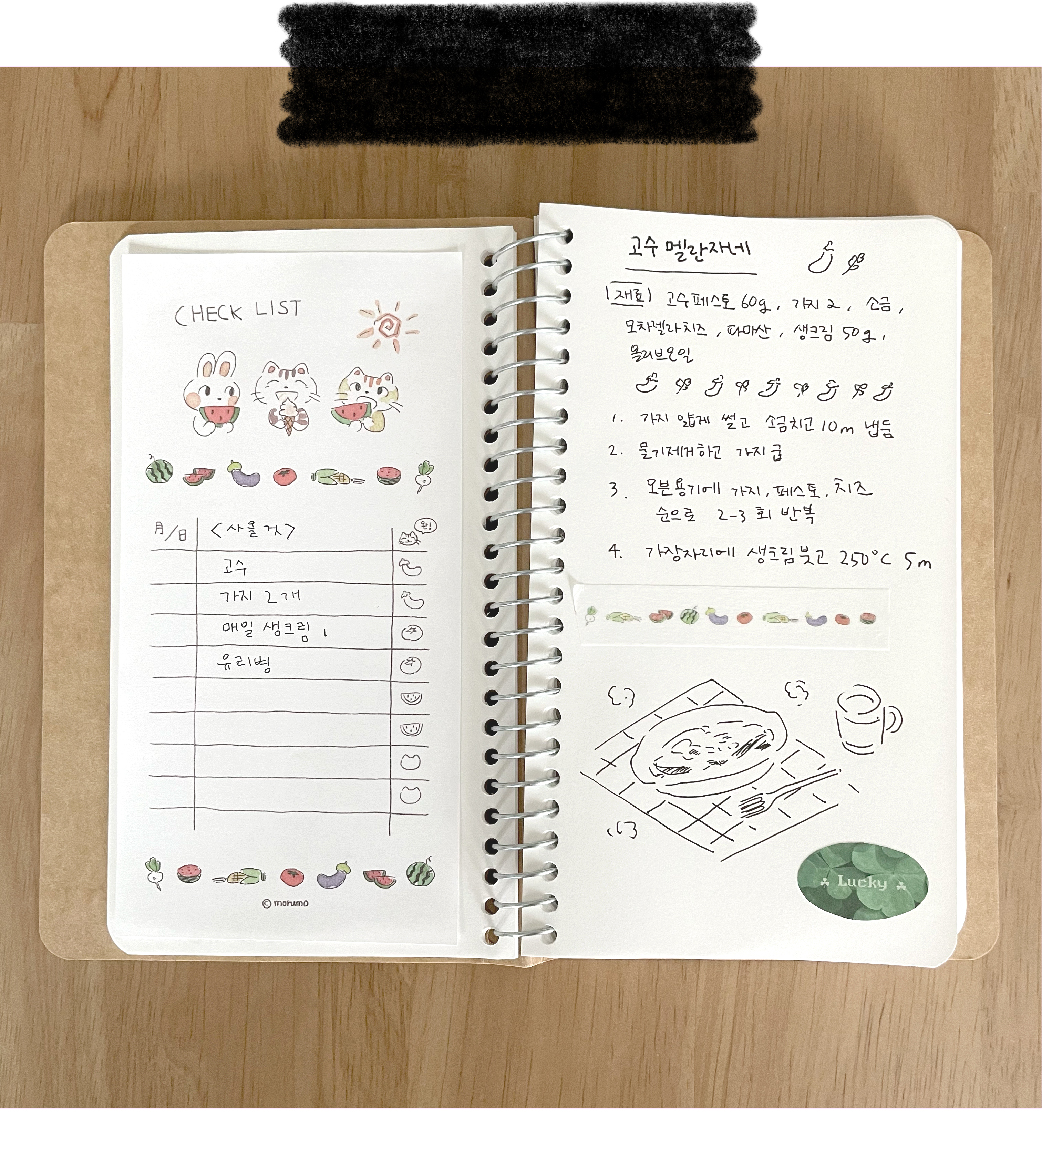 CHECK LIST
月/日 <사올 것>
고수
가지 2개
매일 생크림 1
유리병
© morumo
고수 멜란자네
[재료] 고수페스토 60g, 가지 2, 소금,
모차렐라치즈, 파마산, 생크림 50g,
올리브오일
1. 가지 얇게 썰고 소금치고 10m 냅둠
2. 물기제거하고 가지 굽
3. 오븐용기에 가지, 페스토, 치즈
순으로 2-3회 반복
4. 가장자리에 생크림 붓고 250°C 5m
Lucky